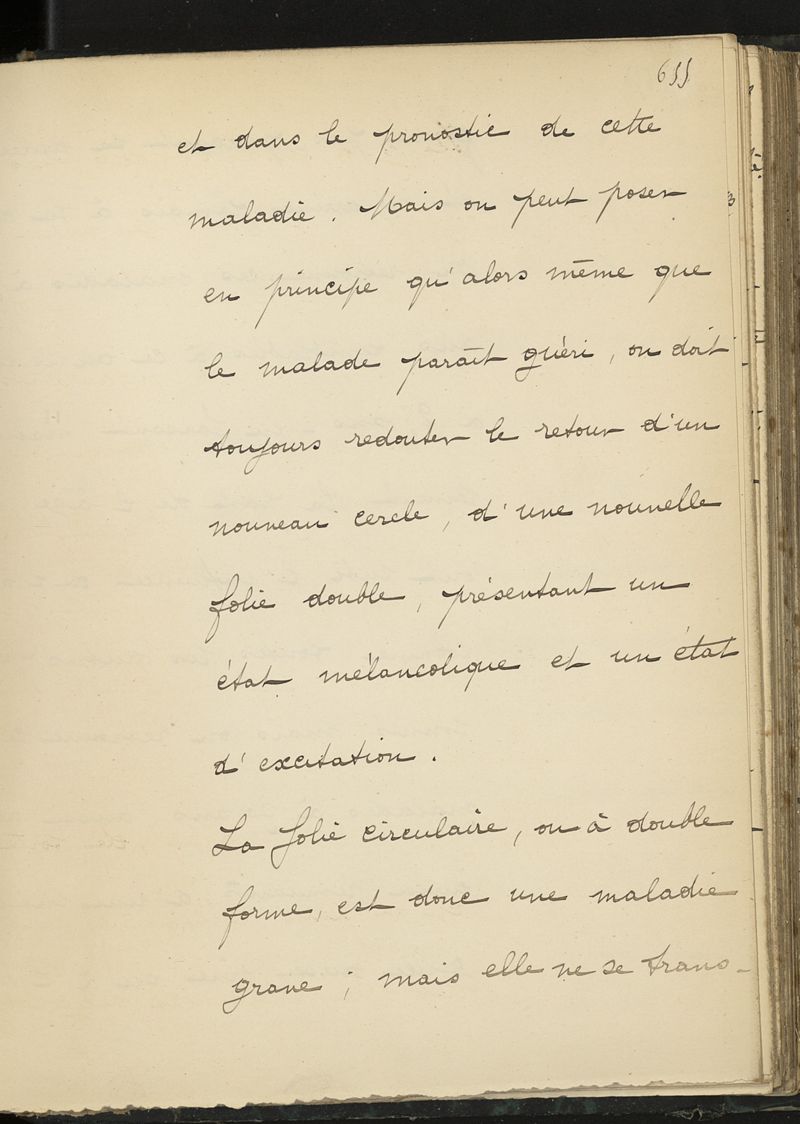 655
et dans le pronostic de cette
maladie. Mais on peut poser
en principe qu'alors même que
le malade paraît guéri, on doit
toujours redouter le retour d'un
nouveau cercle, d'une nouvelle
folie double, présentant un
état mélancolique et un état
d'excitation.
La folie circulaire, ou à double
forme, est donc une maladie
grave; mais elle ne se trans-